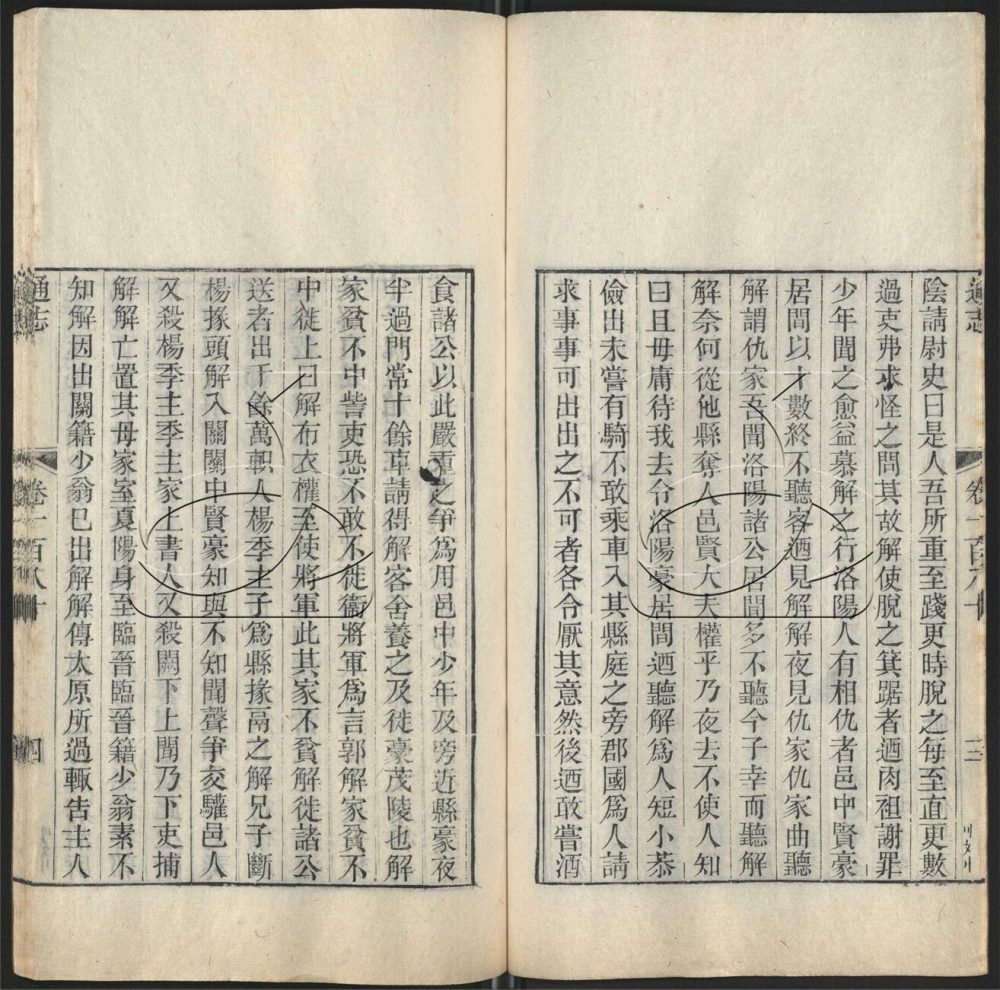 通志
卷一百八十
三
陰請尉史曰是人吾所重至踐更時脫之每至直更數
過吏弗求怪之問其故解使脫之箕踞者迺肉袒謝罪
少年聞之愈益慕解之行洛陽人有相仇者邑中賢豪
居間以十數終不聽客迺見解解夜見仇家仇家曲聽
解謂仇家吾聞洛陽諸公居間多不聽今子幸而聽解
解奈何從他縣奪人邑賢大夫權乎乃夜去不使人知
曰且毋庸待我去令洛陽豪居間迺聽解為人短小恭
儉出未嘗有騎不敢乘車入其縣庭之旁郡國為人請
求事事可出出之不可者各令厭其意然後迺敢嘗酒
食諸公以此嚴重之爭為用邑中少年及旁近縣豪夜
半過門常十餘車請得解客舍養之及徙豪茂陵也解
家貧不中訾吏恐不敢不徙衞將軍為言郭解家貧不
中徙上曰解布衣權至使將軍此其家不貧解徙諸公
送者出千餘萬軹人楊季主子為縣掾鬲之解兄子斷
楊掾頭解入關關中賢豪知與不知聞聲爭交驩邑人
又殺楊季主季主家上書人又殺闕下上聞乃下吏捕
解解亡置其母家室夏陽身至臨晉臨晉籍少翁素不
知解因出關籍少翁巳出解解傳太原所過輒告主人
通志
卷一百八十
四